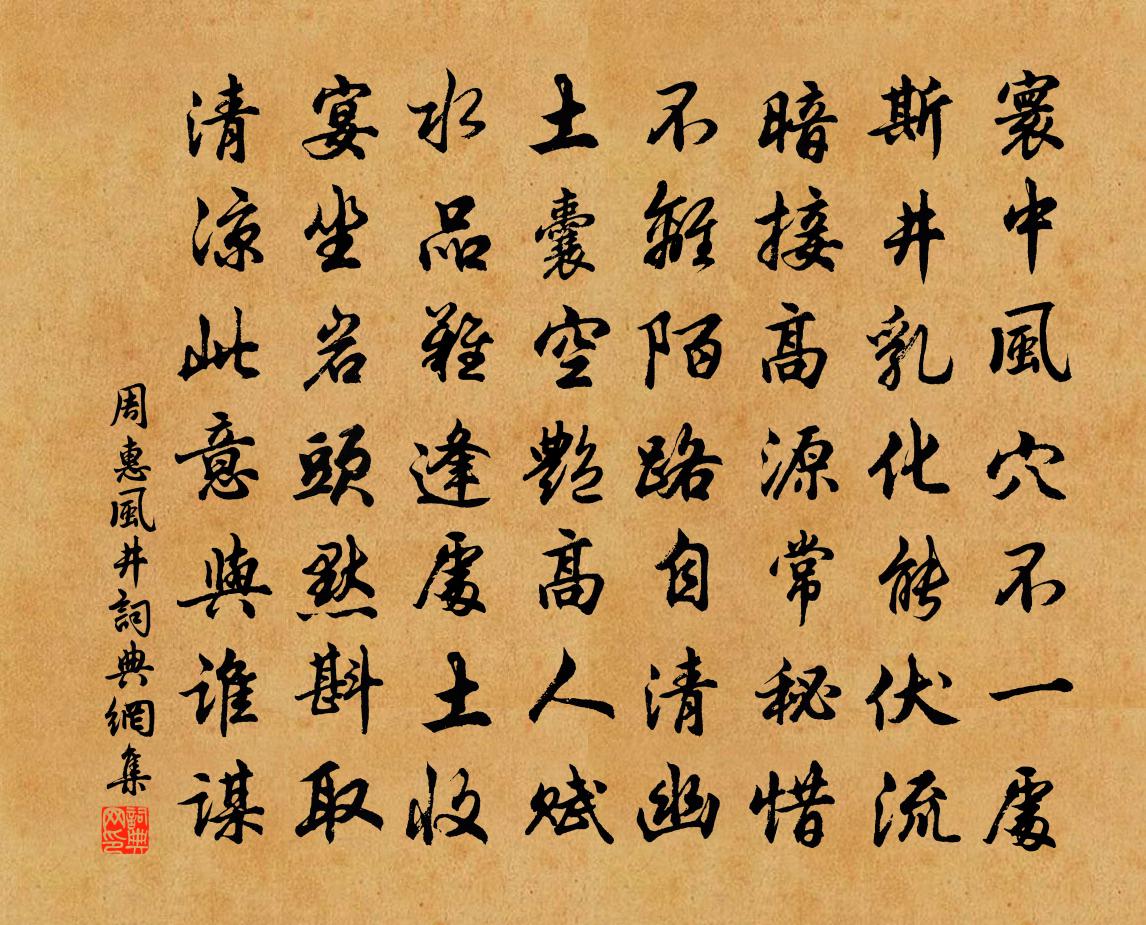 寰中風穴不一處
斯井乳化能伏流
暗接高源常秘惜
不離陌路自清幽
土囊空艷高人賦
水品難逢處士收
宴坐岩頭默斟取
清涼此意與誰謀
周惠風井詞典網集
詞典網印